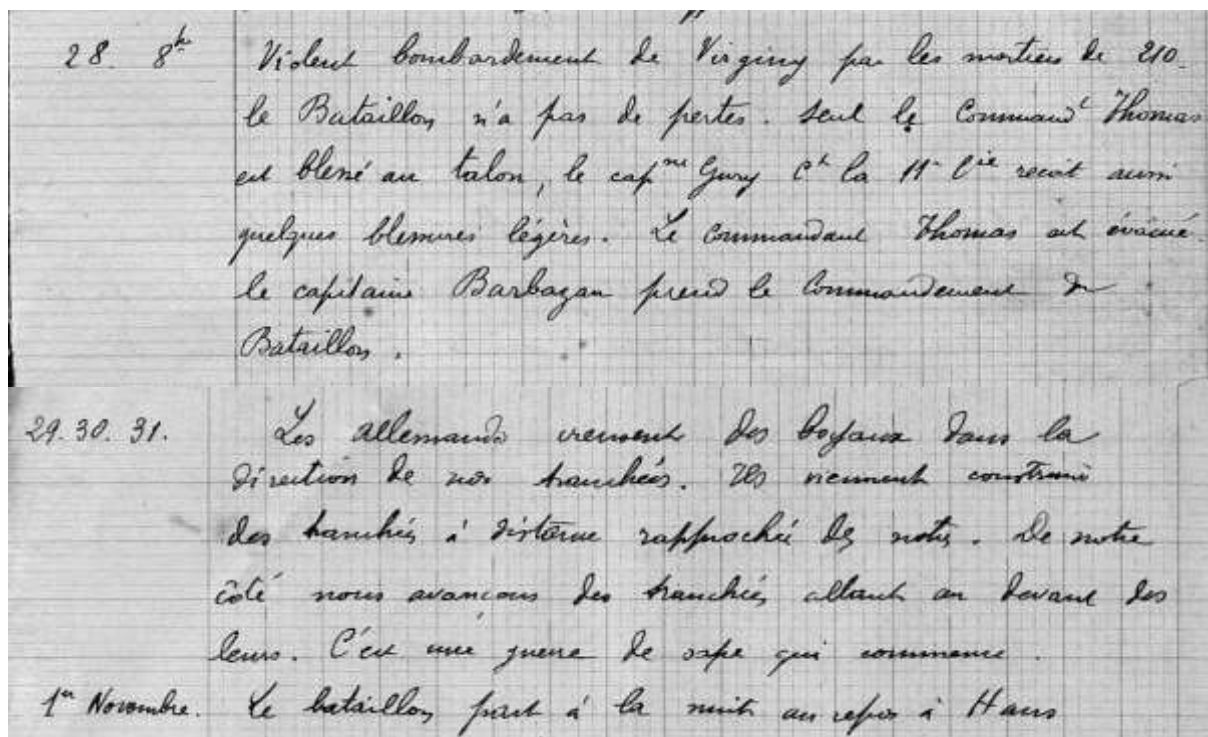 28. 8h Violent bombardement de Virginy par les mortiers de 210.
le Bataillon n'a pas de pertes. Seul le Commandt Thomas
est blessé au talon, le capne Gury Ct la 11e Cie reçoit aussi
quelques blessures légères. Le Commandant Thomas est évacué.
le capitaine Barbazan prend le Commandement du
Bataillon.
29. 30. 31. Les allemands creusent des boyaux dans la
direction de nos tranchées. Ils viennent construire
des tranchées à distance rapprochée des notres. De notre
côté nous avançons des tranchées allant au devant des
leurs. C'est une guerre de sape qui commence.
1er Novembre. Le bataillon part à la nuit au repos à Hans